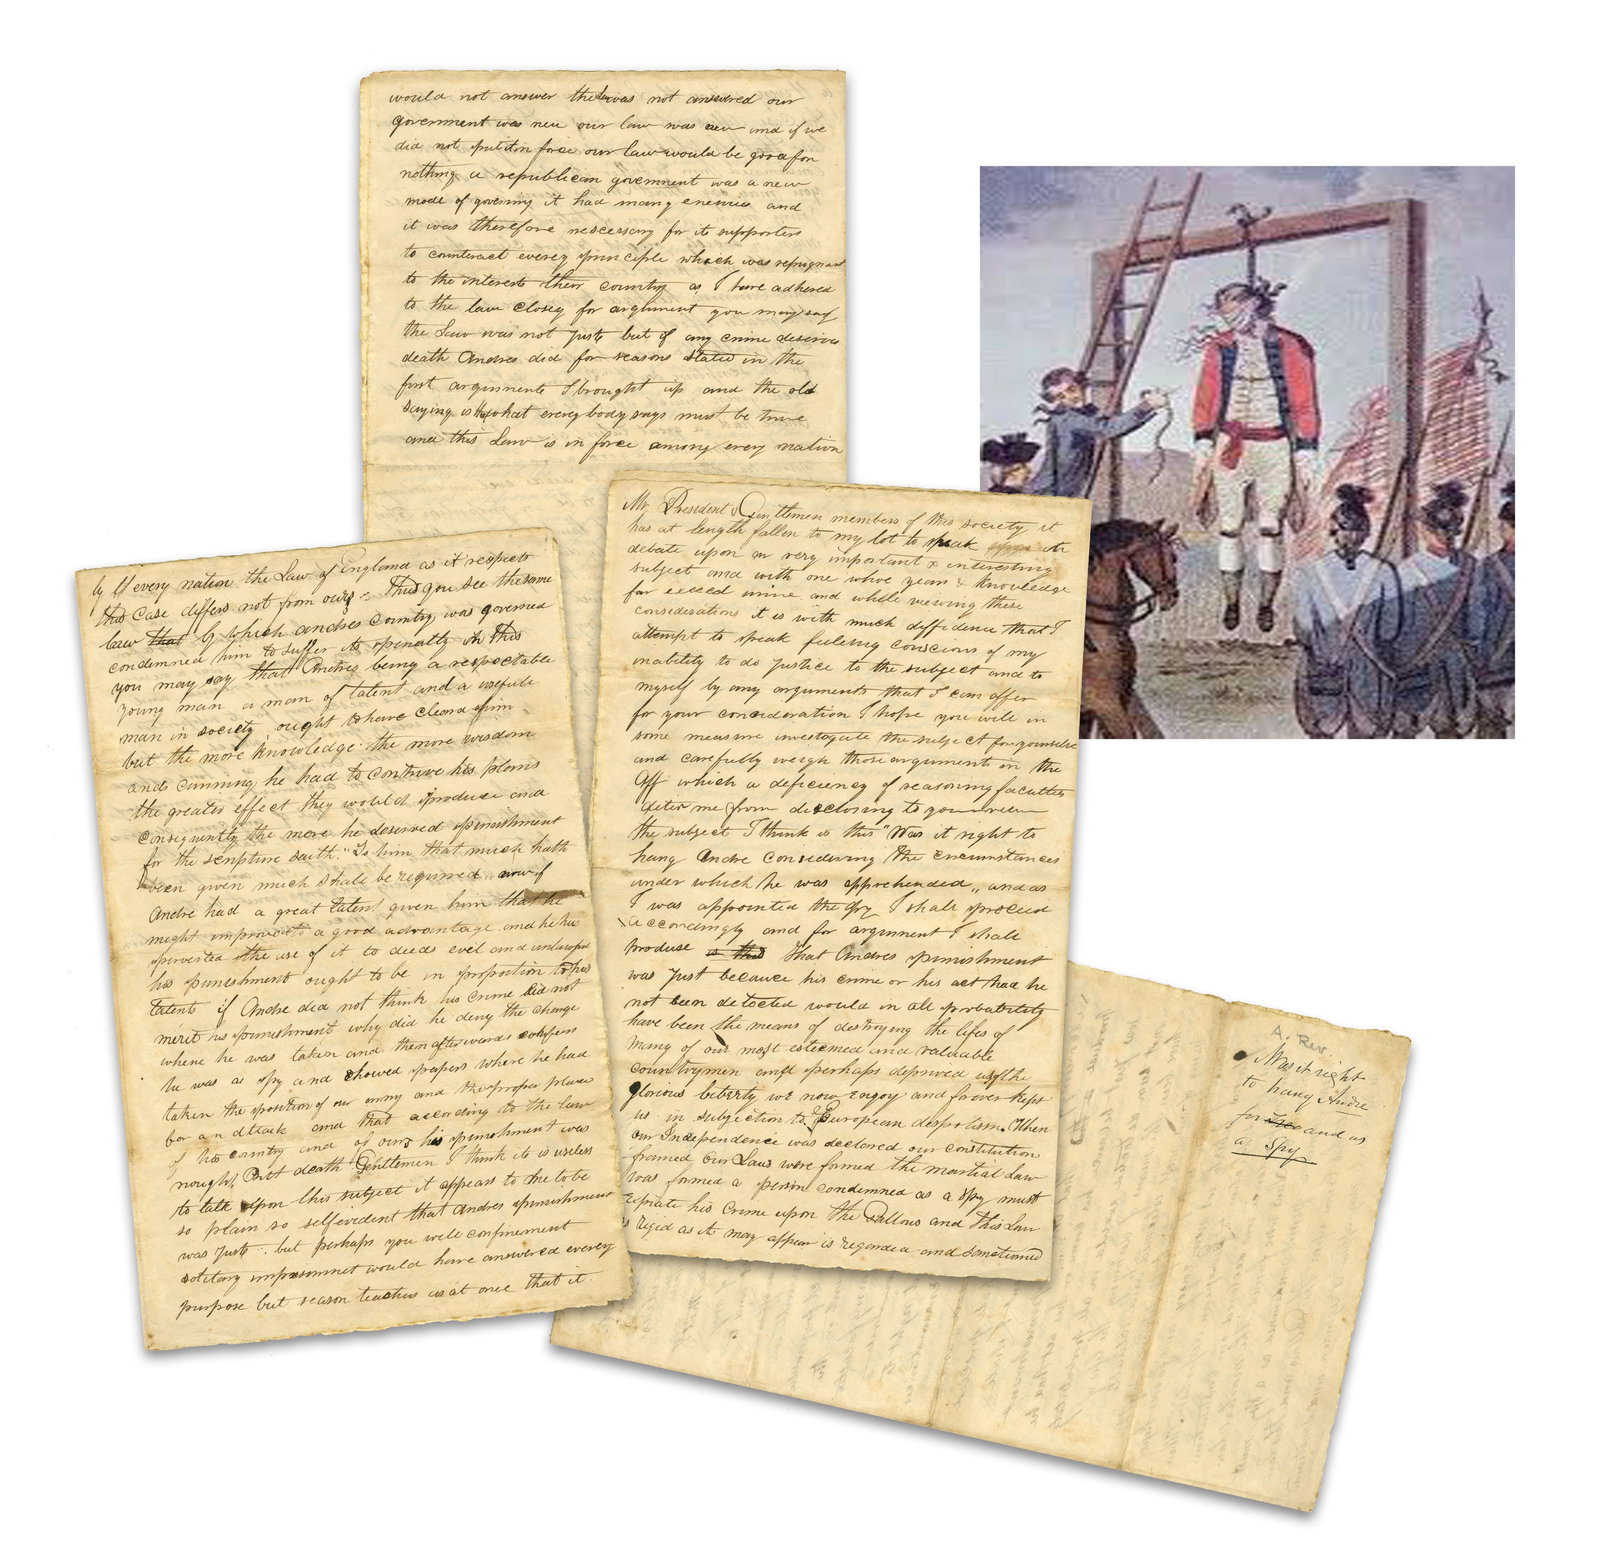 Mr President & Gentlemen members of this society it
has at length fallen to my lot to speak upon
debate upon a very important & interesting
subject and with one whose years & knowledge
far exceed mine and while viewing these
considerations it is with much diffidence that I
attempt to speak feeling conscious of my
inability to do justice to the subject and to
myself by any arguments that I can offer
for your consideration I hope you will in
some measure investigate the subject for yourselve
and carefully weigh those arguments in the
Aff which a deficiency of reasoning faculties
deter me from disclosing to your view
the subject I think is this "Was it right to
hang Andre considering the circumstances
under which he was apprehended,, and as
I was appointed the I shall proceed
accordingly and for argument I shall
produse is this That Andres punishment
was just because his crime or his act had he
not been detected would in all probability
have been the means of destroying the lifes of
many of our most esteemed and valuable
countrymen and perhaps deprived us of the
glorious liberty we now enjoy and forever kept
us in subjection to European despotism. When
our Independence was declared our constitution
framed our Laws were formed the martial Law
was formed a person condemned as a spy must
expiate his crime upon the Gallows and this Law
as reged as it may appear is regarded and sanctioned
by every nation the Law of England as it respects
this case differs not from ours - Thus you see the same
law that by which andres country was governed
condemned him to suffer its penalty in this
you may say that Andres being a respectable
young man a man of talent and a usefull
man in society ought to have cleard him
but the more knowledge the more wisdom
and cunning he had to contrive his plans
the greater effect they would produce and
consequently the more he deserved punishment
for the scripture saith." To him that much hath
been given much shall be required,, now if
Andre had a great talent given him that he
might improve to a good advantage and he has
perverted the use of it to deeds evil and
his punishment ought to be in proportion to his
talents if Andre did not think his crime did not
merit his punishment why did he deny the charge
where he was taken and then afterwards confess
he was a spy and showed papers where he had
taken the position of our army and the proper place
for an attack and that according to the law
of his country and of ours his punishment was
nought But death Gentlemen I think it is useless
to talk upon this subject it appears to me to be
so plain so selfevident that Andres punishment
was just. but perhaps you will confinement
solitary imprisonmet would have answered every
purpose but reason teaches us at once that it
would not answer the was not answered our
government was new our law was new and if we
did not put it in force our law would be good for
nothing a republican government was a new
mode of governing it had many enemies and
it was therefore nescessary for its supporters
to counteract every principle which was repugnant
to the interests their country as I have adhered
to the law closey for argument you may say
the Law was not just but if any crime deserves
death Andres did for reasons stated in the
first arguments I brought up and the old
saying is that what every body says must be true
and this Law is in force among every nation
A. Rev.
Was it right
to hang Andre
for and as
a Spy